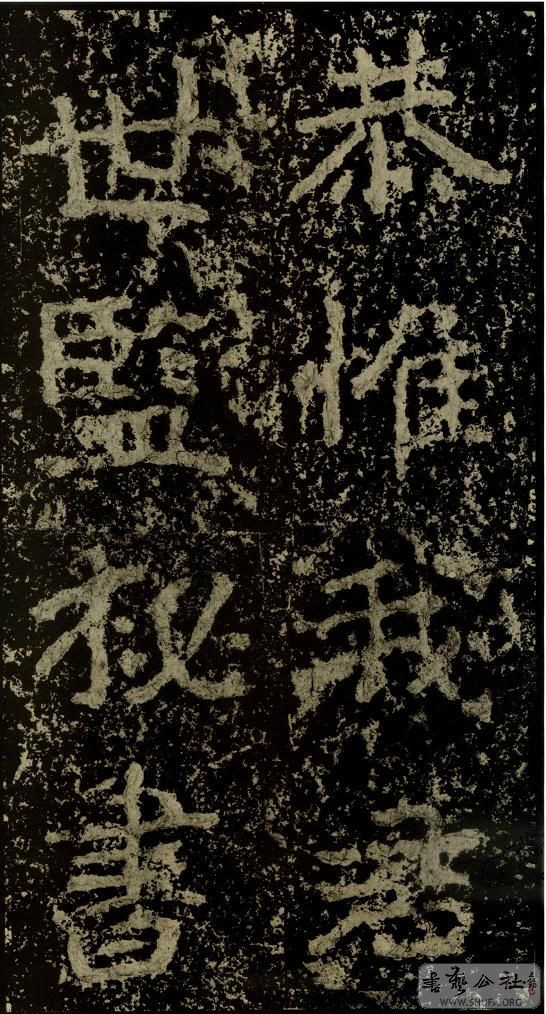 恭惟我君
世監祕書
書藝公社
WWW.SHUFA.ORG